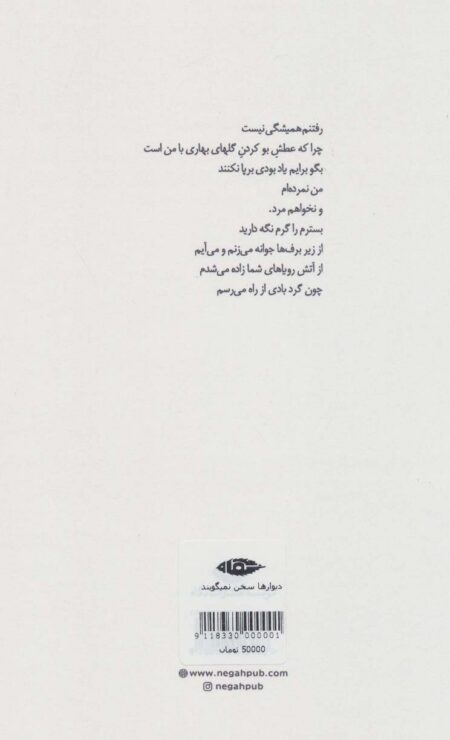 رفتنم همیشگی نیست
چرا که عطشِ بو کردنِ گلهای بهاری با من است
بگو برایم یادبودی برپا نکنند
من نمرده‌ام
و نخواهم مرد.
بسترم را گرم نگه دارید
از زیر برف‌ها جوانه می‌زنم و می‌آیم
از آتش رویاهای شما زاده می‌شدم
چون گرد بادی از راه می‌رسم
دیوارها سخن نمیگویند
9 118330 000001
50000 تومان
www.negahpub.com
negahpub